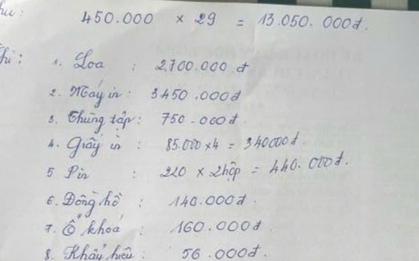 Thu: 450.000 × 29 = 13.050.000đ.
Chi: 1. Loa : 2.700.000 đ
2. Máy in: 3450.000đ
3. Thùng tập: 750.000đ
4. Giấy in : 85.000 x4 = 340000đ.
5 Pin : 220 x 2hộp = 440.000đ.
6. Đồng hồ : 140.000đ.
7. Ổ khoá : 160.000đ
8. Khẩu hiệu : 56.000đ.